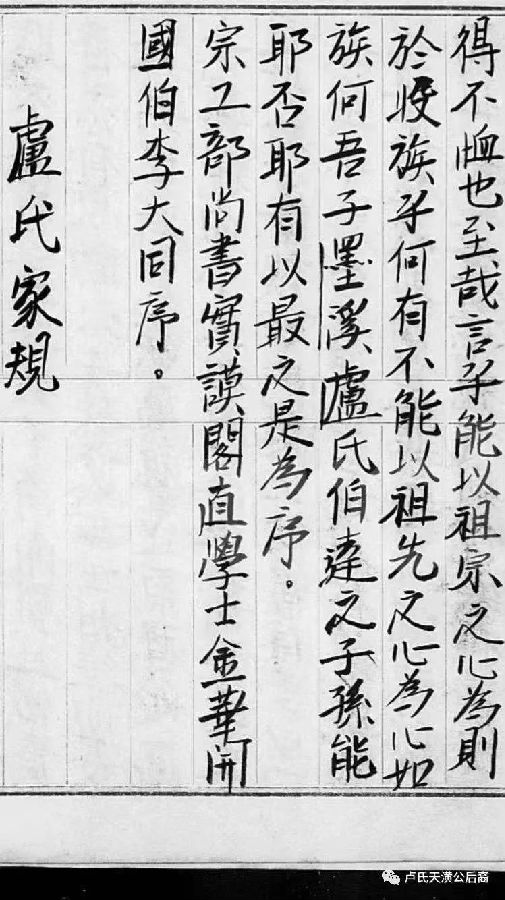 得不恤也至哉言乎能以祖宗之心為則
於收族乎何有不能以祖先之心為心如
族何吾子墨溪盧氏伯達之子孫能
耶否耶有以最之是為序。
宗工部尚書寶謨閣直學士金華開
國伯李大同序。
盧氏家規
卢氏天潢公后裔